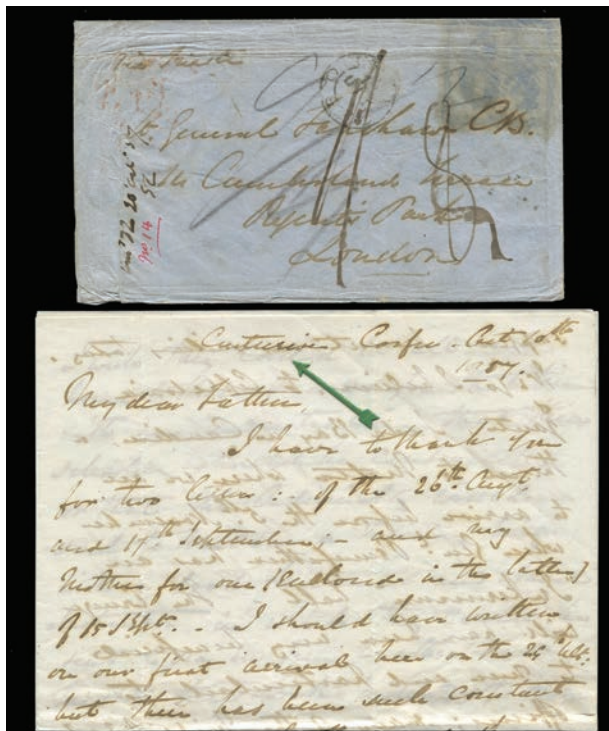 Via Trieste
Lt. General Fanshawe CB.
Cumberland Terrace
Regents Park
London
No 14
Centurion Corfu - Oct 10th
1857.
My dear Father,
I have to thank you
for two letters: of the 26th Augt.
and 17th September; - and my
Mother for one (enclosed in the latter)
of 15 Sept. - I should have written
on our first arrival here on the
but there has been such constant